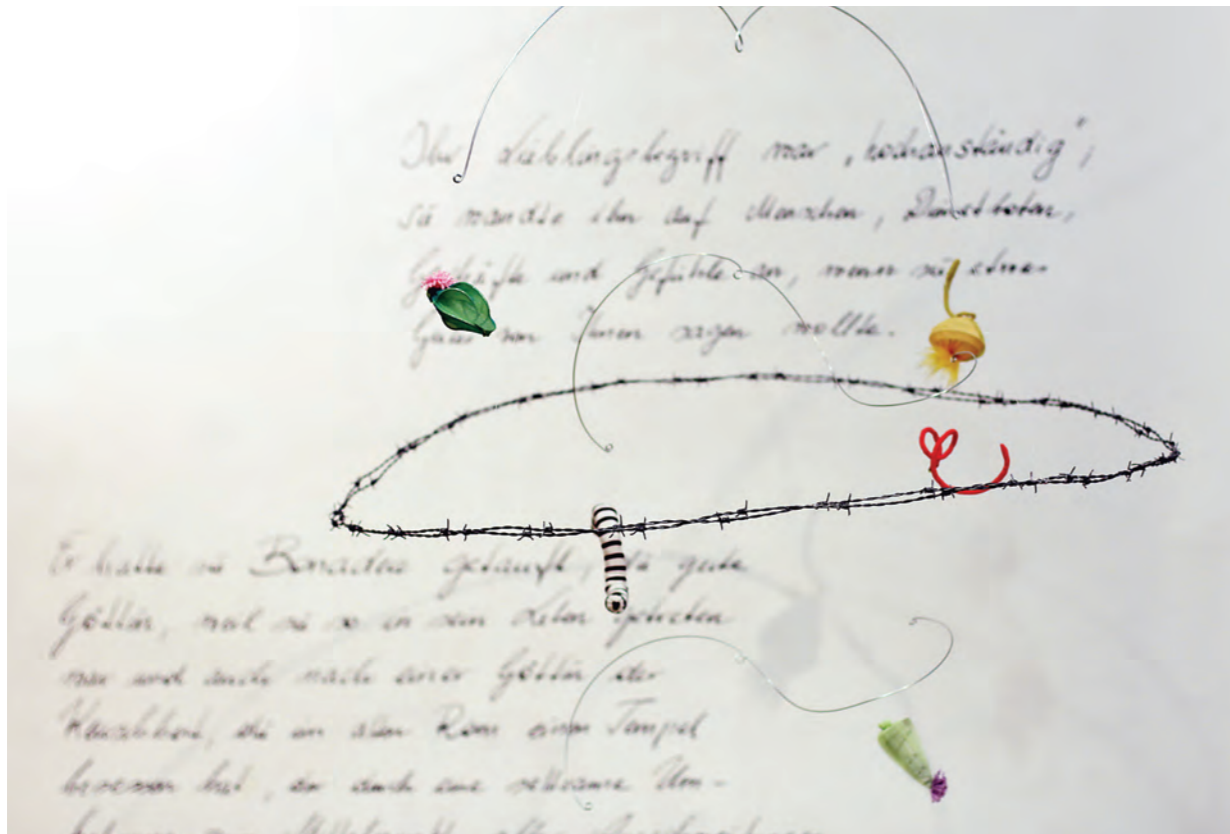 Ihr Lieblingsbegriff war „hochanständig“;
sie wandte ihn auf Menschen, Dienstboten,
Geschäfte und Gefühle an, wenn sie etwas
Gutes von Ihnen sagen wollte.
Er hatte sie Bonadea getauft, die gute
Göttin, weil sie so in sein Leben getreten
war und auch nach einer Göttin der
Keuschheit, die im alten Rom einen Tempel
besessen hat, der durch eine seltsame Um-
Mittelpunkt aller